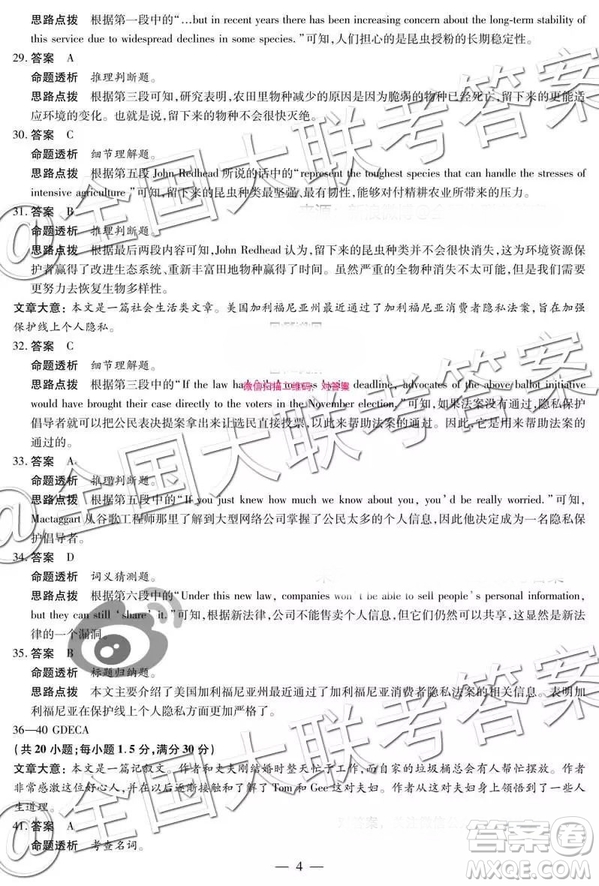 思路点拨 根据第一段中的“…but in recent years there has been increasing concern about the long-term stability of
this service due to widespread declines in some species.”可知,人们担心的是昆虫授粉的长期稳定性。
29. 答案 A
命题透析 推理判断题。
思路点拨 根据第三段可知,研究表明,农田里物种减少的原因是因为脆弱的物种已经死亡,留下来的更能适
应环境的变化。也就是说,留下来的物种不会很快灭绝。
30. 答案 C
命题透析 细节理解题。
思路点拨 根据第五段 John Redhead 所说的话中的“represent the toughest species that can handle the stresses of
intensive agriculture”可知,留下来的昆虫种类最坚强,最有韧性,能够对付精耕农业所带来的压力。
31. 答案 B
命题透析 推理判断题。
思路点拨 根据最后两段内容可知,John Redhead 认为,留下来的昆虫种类不会很快消失,这为环境资源保
护者赢得了改进生态系统、重新丰富田地物种成员的时间。虽然严重,但是还没有糟糕到极点,因此我们
需要更努力来恢复生物多样性。
文章大意:本文是一篇社会生活类文章。美国加利福尼亚州最近通过了加利福尼亚消费者隐私法案,旨在加强
保护线上个人隐私。
32. 答案 C
命题透析 细节理解题。
微信扫描二维码,对答案
思路点拨 根据第三段中的“If the law had failed to pass by the deadline, advocates of the above ballot initiative
would have brought their case directly to the voters in the November election.”可知,如果法案没有通过,隐私保护
倡导者就可以把公民表决提案拿出来让选民直接投票,以此来帮助法案的通过。因此他们在法案的通过方面是有
通过的。
33. 答案 A
命题透析 推理判断题。
思路点拨 根据第五段中的“If you just knew how much we know about you, you'd be really worried.”可知,
Mactaggart 从谷歌工程师那里了解到大型网络公司掌握了公民太多的个人信息,因此他决定成为一名隐私保
护倡导者。
34. 答案 D
命题透析 词义猜测题。
思路点拨 根据第六段中的“Under this new law, companies won't be able to sell people's personal information,
but they can still ‘share’ it.”可知,根据新法律,公司不能售卖个人信息,但是仍然可以共享,这是新法
律的一个漏洞。
35. 答案 B
命题透析 标题归纳题。
思路点拨 本文主要介绍了美国加利福尼亚州最近通过了加利福尼亚消费者隐私法案的相关信息。表明加
利福尼亚在保护线上个人隐私方面更加严格了。
36—40 GDECA
(共 20 小题;每小题 1.5 分,满分 30 分)
文章大意:本文是一篇记叙文。作者和丈夫刚结婚时整天忙于工作,而作者家的垃圾桶总会有人帮忙摆放。作者
非常感激这位好心人,并由此了解了 Tom 和 Gee 这对夫妇。作者从这对夫妇身上领悟到了一些人
生道理。
41. 答案 A
命题透析 考查名词。
— 4 —
@全国大联考答案
@全国大联考答案
@全国大联考答案
答案圈
MXQE.COM